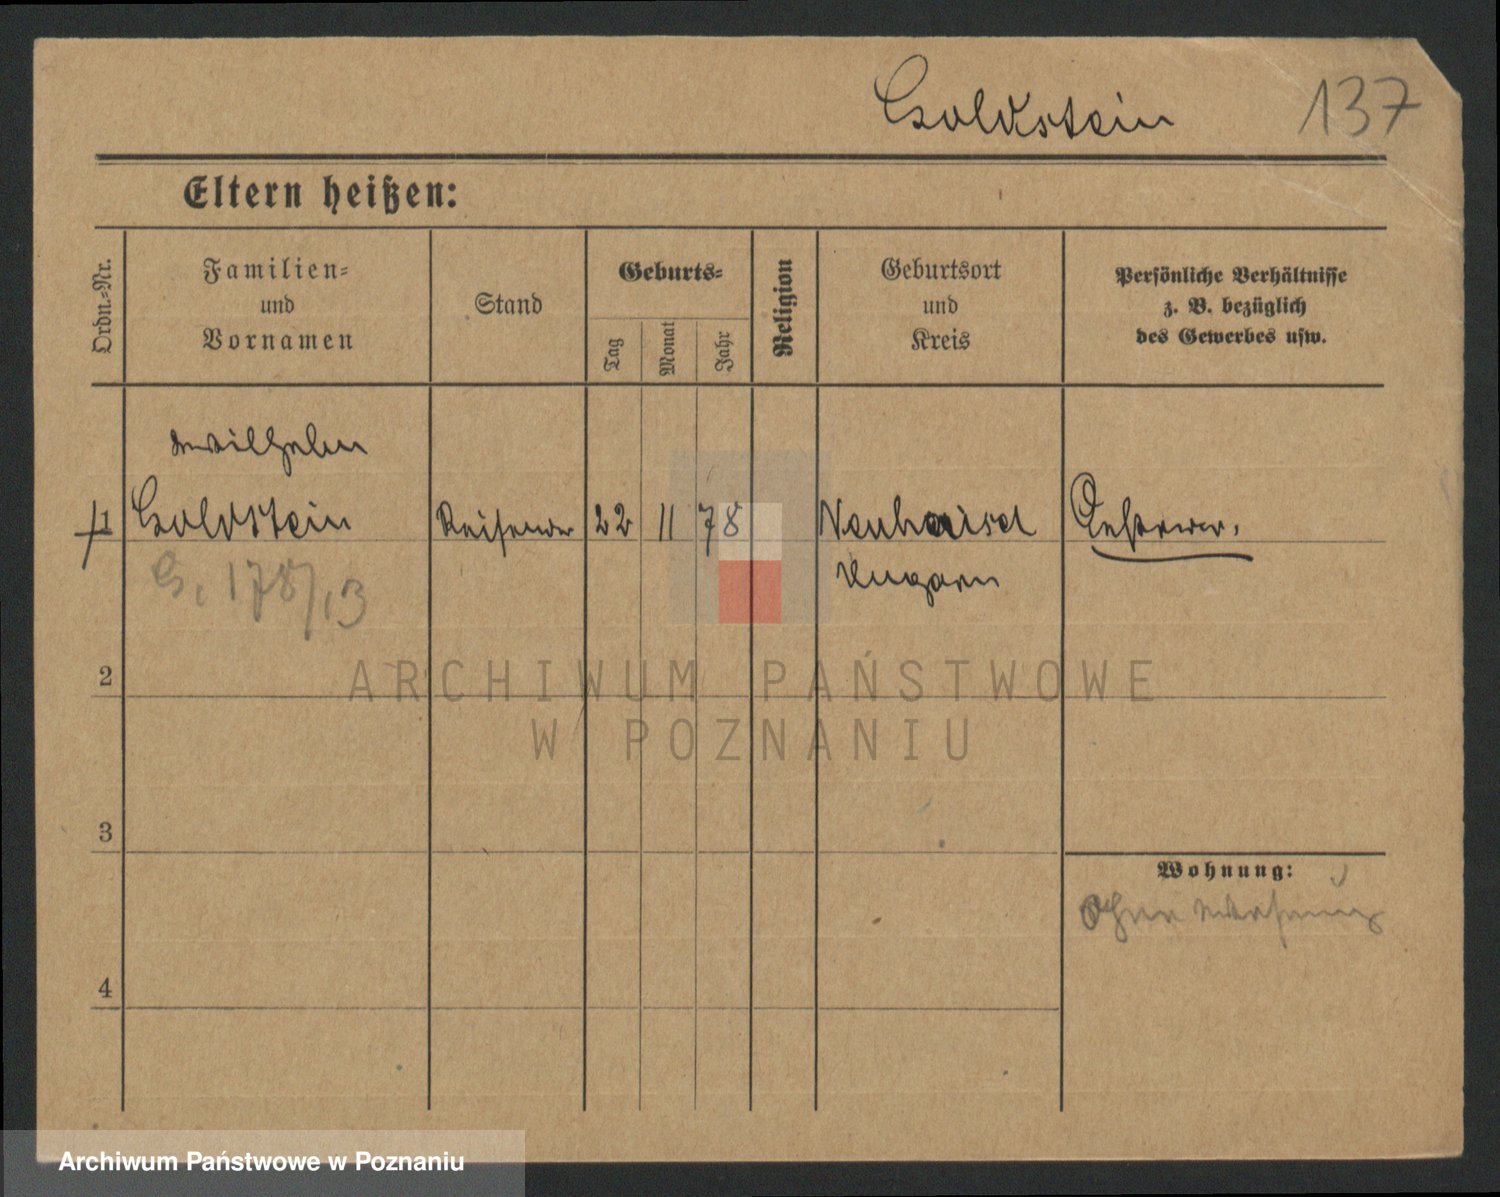 Goldstein 137
Eltern heißen:
Ordn.=Nr.
Familien=
und
Vornamen
Stand
Geburts=
Tag
Monat
Jahr
Religion
Geburtsort
und
Kreis
Persönliche Verhältnisse
z. B. bezüglich
des Gewerbes usw.
Wilhelm
1 Goldstein Reisender 22 11 78
Ungarn
G. 178/13
2
ARCHIWUM PAŃSTWOWE
W POZNANIU
3
Wohnung:
Ohne
4
Archiwum Państwowe w Poznaniu